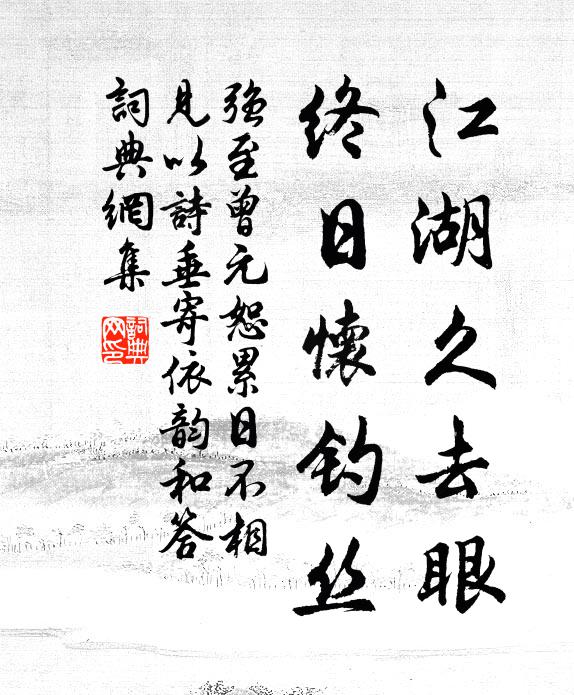 江湖久去眼
终日懷钓丝
强至曾元恕累日不相
見以詩垂寄依韵和答
詞典網集
詞典
网印